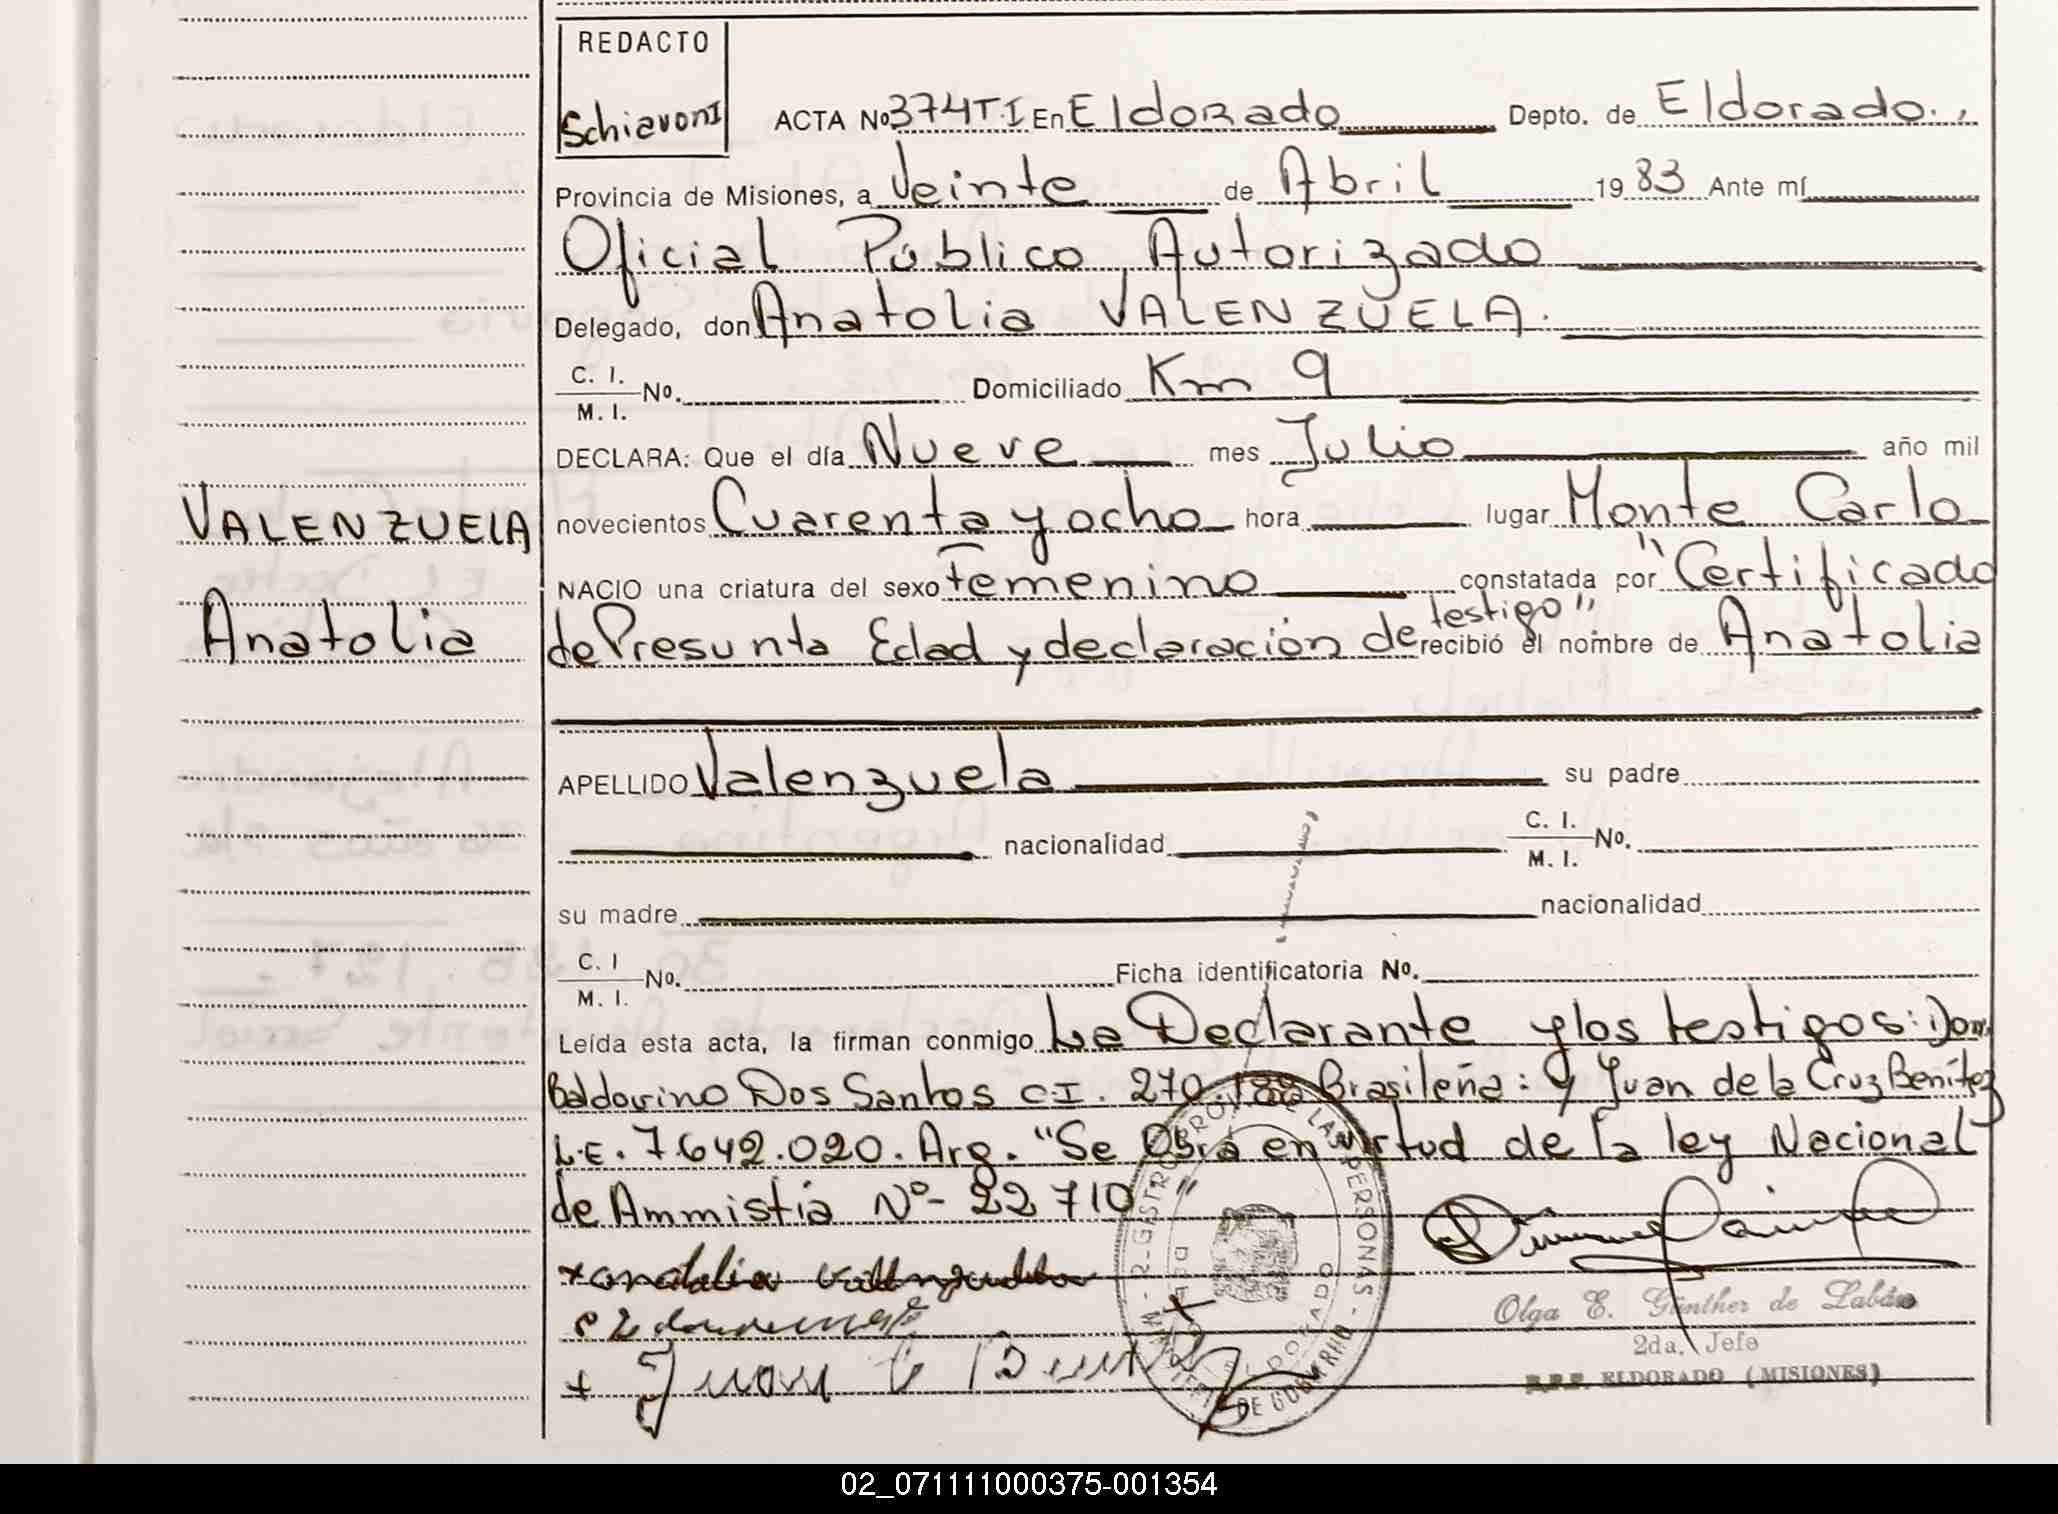 REDACTO
Schiavoni
ACTA No 374 T. I En Eldorado Depto. de Eldorado.,
Provincia de Misiones, a Veinte de Abril 1983 Ante mí
Oficial Público Autorizado
Delegado, don Anatolia VALENZUELA.
C. I.
M. I. No. Domiciliado Km 9
DECLARA: Que el día Nueve mes Julio año mil
novecientos Cuarenta y ocho hora lugar Monte Carlo
NACIO una criatura del sexo Femenino constatada por "Certificado
de Presunta Edad y declaración de testigo" recibió el nombre de Anatolia
VALENZUELA
Anatolia
APELLIDO Valenzuela su padre
nacionalidad C. I.
M. I. No.
su madre nacionalidad
C. I
M. I. No. Ficha identificatoria No.
Leída esta acta, la firman conmigo La Declarante y los testigos: Don
Baldovino Dos Santos C.I. 270. Brasileña: y Juan de la Cruz Benítez
L.E. 7.642.020. Arg. "Se Obra en virtud de la ley Nacional
de Ammistia Nº- 22710"
Olga E. Günther de Labán
2da. Jefe
ELDORADO (MISIONES)
REGISTRO PROV. DE LAS PERSONAS
ELDORADO
02_071111000375-001354